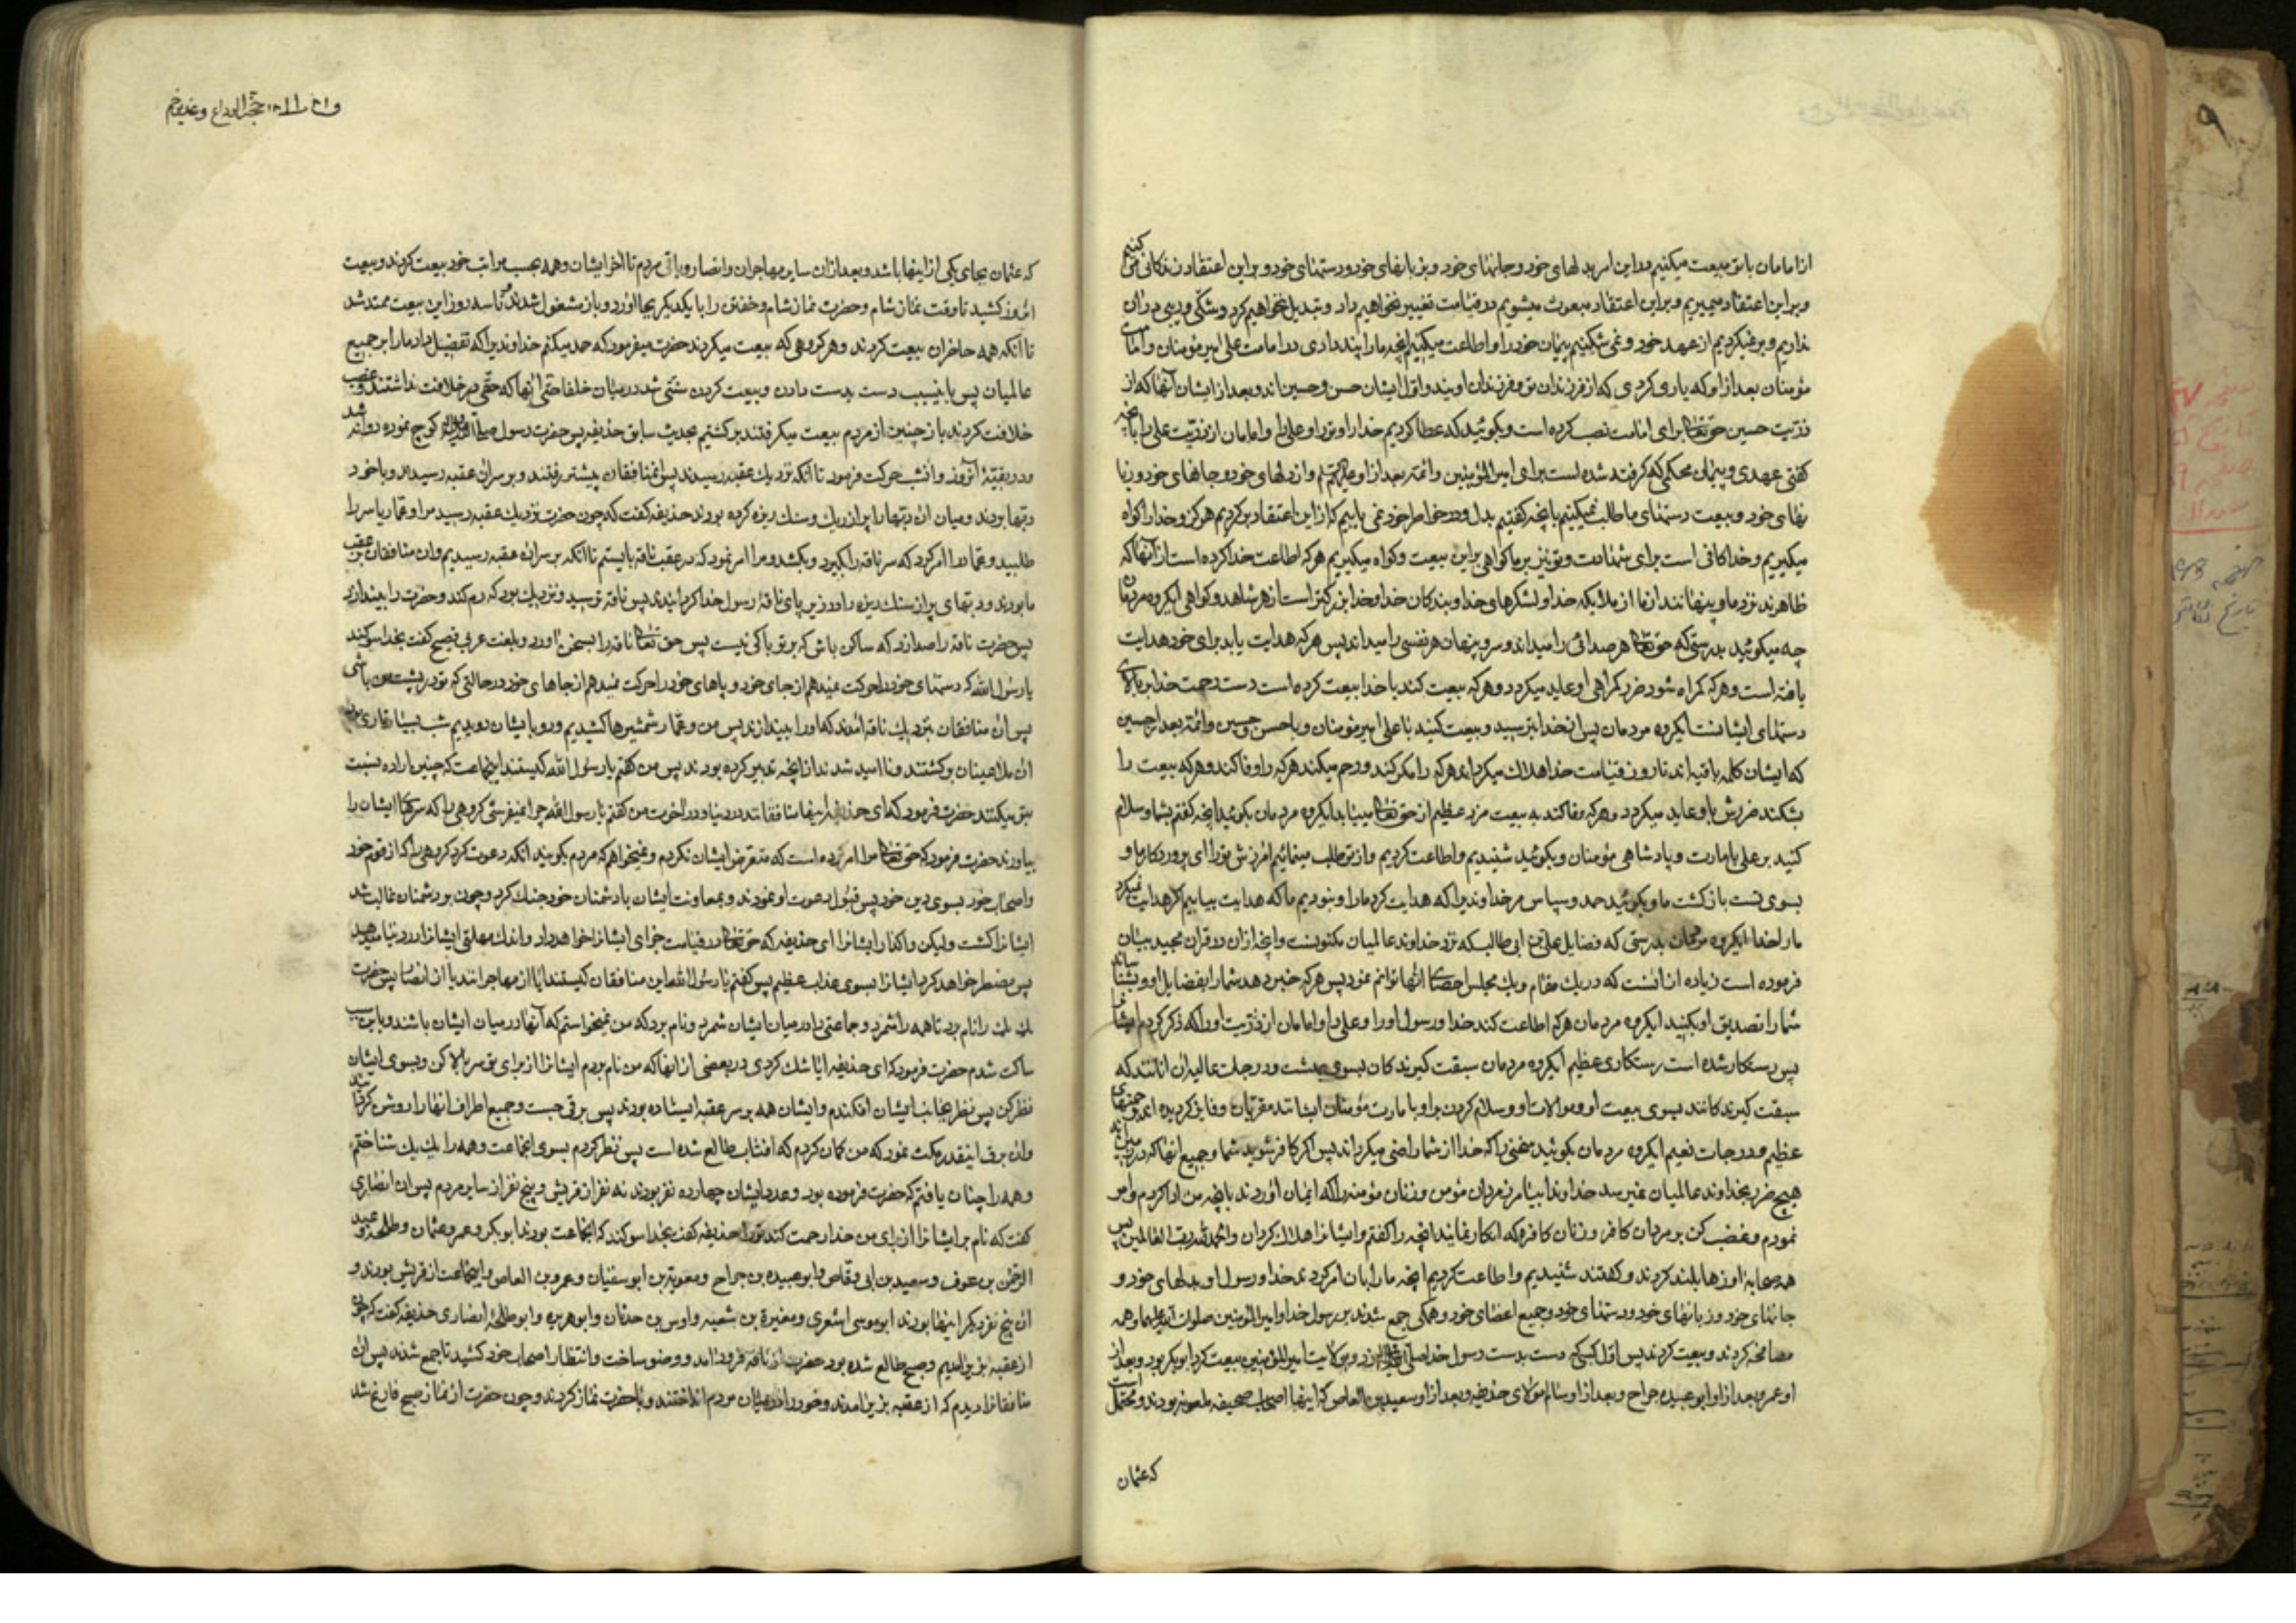 از امامان با تو بیعت میکنیم در این امر بدلهای خود و جانهای خود و بزبانهای خود و دستهای خود و براین اعتقاد زندکانی می کنیم
و براین اعتقاد میمیریم و براین اعتقاد مبعوث میشویم در قیامت تغییر نخواهیم داد و تبدیل نخواهیم کرد و شکی و ریبی در ان
نداریم و برنمیکردیم از عهد خود و نمی شکنیم پیمان خود را و اطاعت میکنیم انچه ما را پند دادی در امامت علی امیر مؤمنان و امامان
مؤمنان بعد از او که یاری کردی که از فرزندان تو و فرزندان اویند و اول ایشان حسن و حسین اند و بعد از ایشان آنها که از
ذریت حسین حق تعالی برای امامت نصب کرده است و بکوئید که عطا کردیم خدا را و تو را و علی را و امامان از ذریت علی را بانچه
کفتی عهدی و پیمان محکمی که کرفته شده است برای امیر المؤمنین و ائمه بعد از او از دلهای خود و جانهای خود و زبا
نهای خود و بیعت دستهای ما طلب نمیکنیم بانچه کفتیم بدل و در خواطر خود نمی یابیم که از این اعتقاد برکردیم هرکز و خدا را کواه
میکیریم و خدا کافی است برای شهادت و تو نیز بر ما کواهی براین بیعت و کواه میکیریم هرکه اطاعت خدا کرده است از آنها که
ظاهرند نزد ما و پنهانند از ما از ملایکه خدا و لشکرهای خدا و بندکان خدا و خدا بزرکتر است از هر شاهد و کواهی ایکروه مردمان
چه میکوئید بدرستی که حق تعالی هر صدائی را میداند و سر و پنهان هر نفسی را میداند پس هرکه هدایت یابد برای خود هدایت
یافته است و هرکه کمراه شود ضرر کمراهی او عاید میکردد و هرکه بیعت کند با خدا بیعت کرده است دست رحمت خدا بر بالای
دستهای ایشانست ایکروه مردمان پس از خدا بترسید و بیعت کنید با علی امیر مؤمنان و با حسن و حسین و ائمه بعد از حسین
که ایشان کلمه باقیه اند تا روز قیامت خدا هلاک میکرداند هرکه را مکر کند و رحم میکند هرکه را وفا کند و هرکه بیعت را
بشکند ضررش باو عاید میکردد و هرکه وفا کند به بیعت مزد عظیم از حق تعالی مییابد ایکروه مردمان بکوئید انچه کفتم بشما و سلام
کنید بر علی بامارت و پادشاهی مؤمنان و بکوئید شنیدیم و اطاعت کردیم و از تو طلب مینمائیم امرزش تو را ای پروردکار ما و
بسوی تست بازکشت ما و بکوئید حمد و سپاس مر خداوندیرا که هدایت کرد ما را و نبودیم ما که هدایت بیابیم اکر هدایت نمیکرد
ما را خدا ایکروه مردمان بدرستی که فضایل علی بن ابی طالب که نزد خداوند عالمیان مکنونست و انچه از ان در قران مجید بیان
فرموده است زیاده از انست که در یک مقام و یک مجلس احصای انها توانم نمود پس هرکه خبر دهد شما را بفضایل او و بشناساند
شما را تصدیق او بکنید ایکروه مردمان هرکه اطاعت کند خدا و رسول او را و علی را و امامان از ذریت او را که ذکر کردم ایشان را
پس رستکار شده است رستکاری عظیم ایکروه مردمان سبقت کیرندکان بسوی بهشت و درجات عالیه ان انانند که
سبقت کیرندکانند بسوی بیعت او و موالات او و سلام کردن بر او بامارت مؤمنان ایشانند مقربان و فایز کردیده اند
عظیم و درجات نعیم ایکروه مردمان بکوئید سخنی را که خدا از شما راضی میکرداند پس اکر کافر شوید شما و جمیع انها که در زمین اند
هیچ ضرر بخداوند عالمیان نمیرسد خداوندا بیامرز مردان مؤمن و زنان مؤمنه را که ایمان اوردند بانچه من ادا کردم و امر
نمودم و غضب کن بر مردان کافر و زنان کافره که انکار نمایند انچه را کفتم و ایشانرا هلاک کردان و الحمد لله رب العالمین پس
همه صحابه اوازها بلند کردند و کفتند شنیدیم و اطاعت کردیم انچه ما را بان امر کردند خدا و رسول او بدلهای خود و
جانهای خود و زبانهای خود و دستهای خود و جمیع اعضای خود و همکی جمع شدند بر رسول خدا و امیر المؤمنین صلوات الله علیهما و همه
مصافحه کردند و بیعت کردند پس اول کسی که دست بدست رسول خدا صلی الله علیه و اله زد و بولایت امیر المؤمنین بیعت کرد ابو بکر بود و بعد از
او عمر و بعد از او ابو عبیده جراح و بعد از او سالم مولای حذیفه و بعد از او سعید بن العاص که اینها اصحاب صحیفه ملعونه بودند و محتمل است
که عثمان
حجة الوداع و غدیر خم
که عثمان بجای یکی از اینها باشد و بعد از ان سایر مهاجران و انصار و باقی مردم تا اخر ایشان و همه بحسب مراتب خود بیعت کردند و بیعت
انروز کشید تا وقت نماز شام و حضرت نماز شام و خفتن را با یکدیکر بجا اورد و باز مشغول شدند تا سه روز این بیعت ممتد شد
تا آنکه همه حاضران بیعت کردند و هر کروهی که بیعت میکردند حضرت میفرمود که حمد میکنم خداوندیرا که تفضیل داد ما را بر جمیع
عالمیان پس باینسبب دست بدست دادن و بیعت کردن سنتی شد در میان خلفا حتی آنها که حقی در خلافت نداشتند و غصب
خلافت کردند باز چنین از مردم بیعت میکرفتند برکشتیم بحدیث سابق حذیفه پس حضرت رسول صلی الله علیه و اله کوچ نموده روانه شد
و در بقیه انروز و انشب حرکت فرمود تا انکه نزدیک عقبه رسیدند پس انمنافقان پیشتر رفتند و بر سر ان عقبه رسیدند و با خود
دبها بردند و میان ان دبها را پر از ریک و سنک ریزه کرده بودند حذیفه کفت که چون حضرت نزدیک عقبه رسید مرا و عمار یاسر را
طلبید و عمار را امر کرد که سر ناقه را بکیرد و بکشد و مرا امر نمود که در عقب ناقه بایستم تا انکه بر سر ان عقبه رسیدیم و ان منافقان در عقب
ما بودند و دبهای پر از سنک ریزه را در زیر پای ناقه رسول خدا کردانیدند پس ناقه ترسید و نزدیک بود که رم کند و حضرت را بیندازد
پس حضرت ناقه را صدا زد که ساکن باش که بر تو باکی نیست پس حق تعالی ناقه را بسخن اورد و بلغت عربی فصیح کفت بخدا سوکند
یا رسول الله که دستهای خود را حرکت نمیدهم از جای خود و پاهای خود را حرکت نمیدهم از جاهای خود در حالتی که تو در پشت من باشی
پس ان منافقان بنزدیک ناقه امدند که او را بیندازند پس من و عمار شمشیرها کشیدیم و رو بایشان دویدیم شب بسیار تاری بود
ان ملاعینان برکشتند و نا امید شدند از انچه تدبیر کرده بودند پس من کفتم یا رسول الله کیستند اینجماعت که چنین اراده نسبت
بتو میکنند حضرت فرمود که ای حذیفه اینها منافقانند در دنیا و در اخرت من کفتم یا رسول الله چرا نمیفرستی کروهی را که سرهای ایشان را
بیاورند حضرت فرمود که حق تعالی مرا امر کرده است که متعرض ایشان نکردم و نمیخواهم که مردم بکویند انکه دعوت کرد کروهی را که از قوم خود
و اصحاب خود بسوی دین خود پس قبول دعوت او نمودند و بمعاونت ایشان با دشمنان خود جنک کرد و چون بر دشمنان غالب شد
ایشانرا کشت ولیکن واکذار ایشانرا ای حذیفه که حق تعالی در قیامت جزای ایشانرا خواهد داد و اندک مهلتی ایشانرا در دنیا میدهد
پس مضطر خواهد کرد ایشانرا بسوی عذاب عظیم پس کفتم یا رسول الله این منافقان کیستند ایا از مهاجرانند یا از انصار پس حضرت
یک یک را نام برد تا همه را شمرد و جماعتی را در میان ایشان شمرد و نام برد که من نمیخواستم که آنها در میان ایشان باشند و باین سبب
ساکت شدم حضرت فرمود که ای حذیفه ایا شک کردی در بعضی از انها که من نام بردم ایشانرا از برای تو سر بالا کن و بسوی ایشان
نظر کن پس نظر بجانب ایشان افکندم و ایشان همه بر سر عقبه ایستاده بودند پس برقی جست و جمیع اطراف انها را روشن کرد
وان برق اینقدر مکث نمود که من کمان کردم که افتاب طالع شده است پس نظر کردم بسوی انجماعت و همه را یک یک شناختم
و همه را چنان یافتم که حضرت فرموده بود و عدد ایشان چهارده نفر بودند نه نفر از قریش و پنج نفر از سایر مردم پس ان انصاری
کفت که نام بر ایشانرا از برای من خدا رحمت کند تو را حذیفه کفت بخدا سوکند که انجماعت بودند ابو بکر و عمر و عثمان و طلحه و عبد
الرحمن بن عوف و سعید بن ابی وقاص و ابو عبیده بن جراح و معویة بن ابو سفیان و عمرو بن العاص و اینجماعت از قریش بودند و
ان پنج نفر دیکر اینها بودند ابو موسی اشعری و مغیرة بن شعبه و اوس بن حدثان و ابو هریره و ابو طلحه انصاری حذیفه کفت که چون
از عقبه بزیر امدیم و صبح طالع شده بود حضرت از ناقه فرود امد و وضو ساخت و انتظار اصحاب خود کشید تا جمع شدند پس ان
منافقانرا دیدم که از عقبه بزیر امدند و خود را در میان مردم انداختند و با حضرت نماز کردند و چون حضرت از نماز صبح فارغ شد